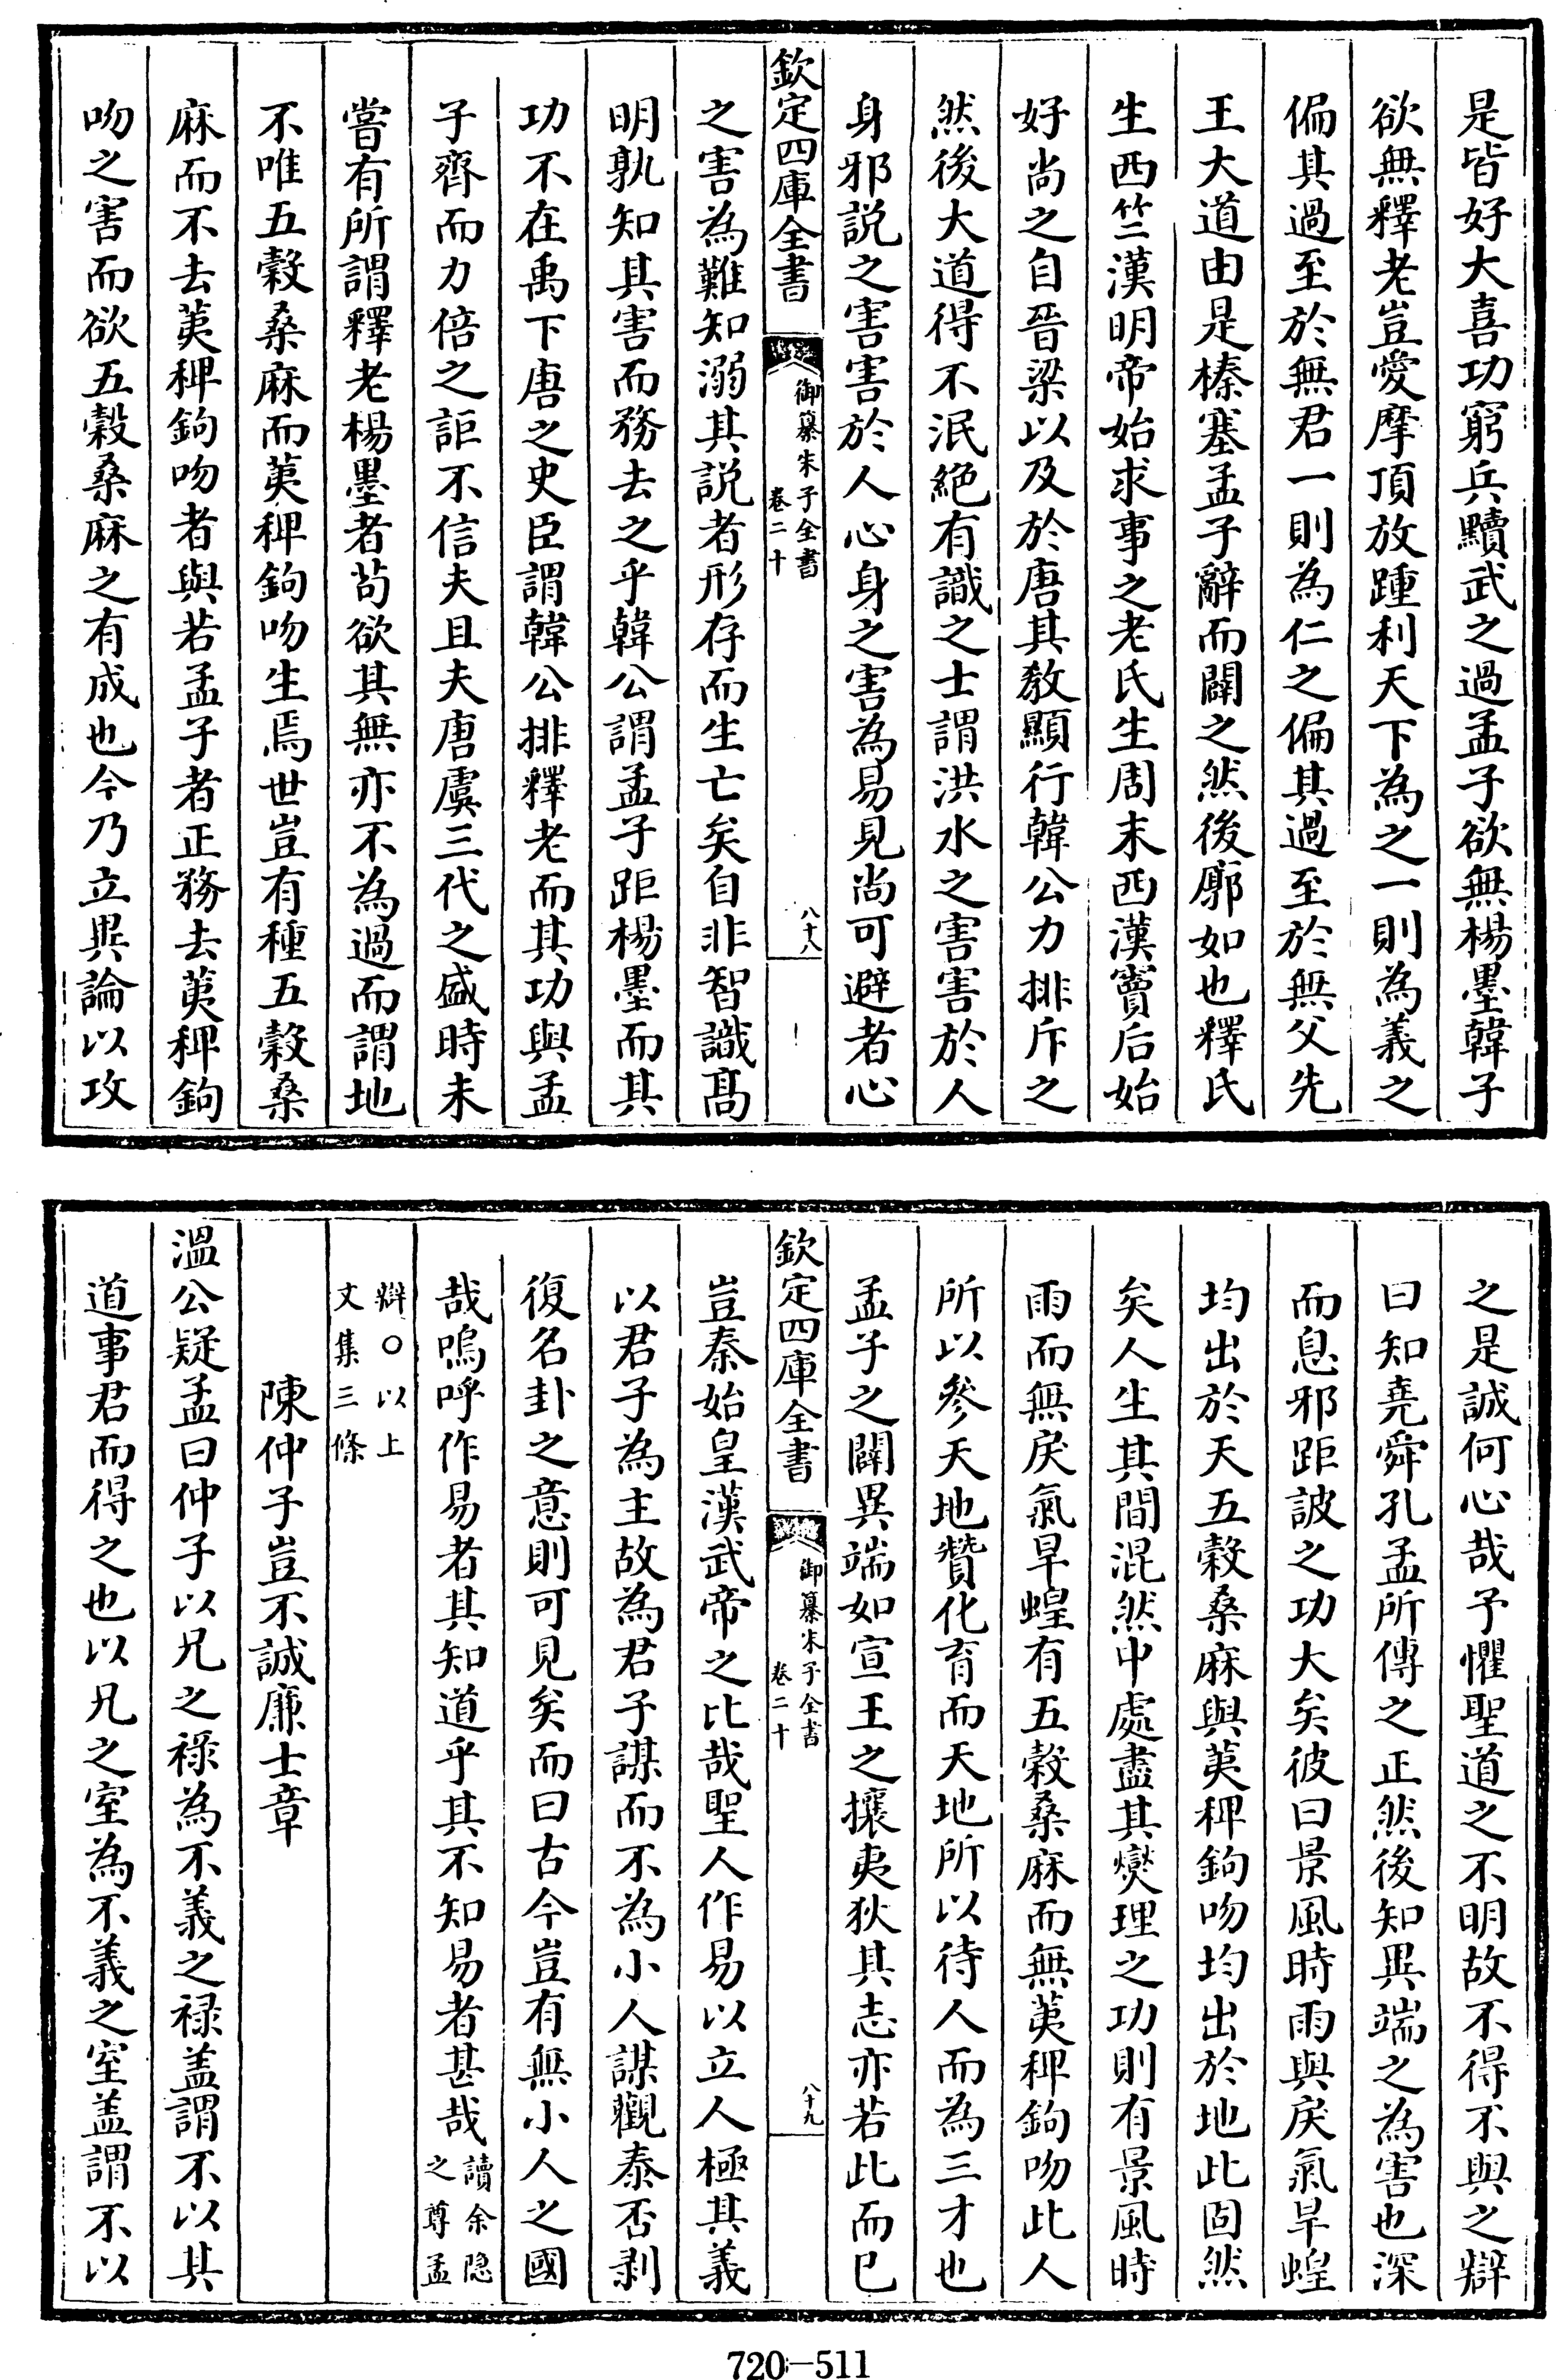 是皆好大喜功窮兵黷武之過孟子欲無楊墨韓子
欲無釋老豈愛摩頂放踵利天下為之一則為義之
偏其過至於無君一則為仁之偏其過至於無父先
王大道由是榛塞孟子辭而闢之然後廓如也釋氏
生西竺漢明帝始求事之老氏生周末西漢竇后始
好尚之自晉梁以及於唐其教顯行韓公力排斥之
然後大道得不泯絶有識之士謂洪水之害害於人
身邪説之害害於人心身之害為易見尚可避者心
欽定四庫全書
御纂朱子全書
卷二十
八十八
之害為難知溺其説者形存而生亡矣自非智識髙
明孰知其害而務去之乎韓公謂孟子距楊墨而其
功不在禹下唐之史臣謂韓公排釋老而其功與孟
子齊而力倍之詎不信夫且夫唐虞三代之盛時未
嘗有所謂釋老楊墨者茍欲其無亦不為過而謂地
不唯五穀桑麻而荑稗鉤吻生焉世豈有種五穀桑
麻而不去荑稗鉤吻者與若孟子者正務去荑稗鉤
吻之害而欲五穀桑麻之有成也今乃立異論以攻
之是誠何心哉予懼聖道之不明故不得不與之辯
曰知堯舜孔孟所傳之正然後知異端之為害也深
而息邪距詖之功大矣彼曰景風時雨與戾氣旱蝗
均出於天五穀桑麻與荑稗鉤吻均出於地此固然
矣人生其間混然中處盡其爕理之功則有景風時
雨而無戾氣旱蝗有五穀桑麻而無荑稗鉤吻此人
所以參天地贊化育而天地所以待人而為三才也
孟子之闢異端如宣王之攘夷狄其志亦若此而已
欽定四庫全書
御纂朱子全書
卷二十
八十九
豈秦始皇漢武帝之比哉聖人作易以立人極其義
以君子為主故為君子謀而不為小人謀觀泰否剥
復名卦之意則可見矣而曰古今豈有無小人之國
哉嗚呼作易者其知道乎其不知易者甚哉讀余隐
之尊孟
辯○以上
文集三條
陳仲子豈不誠廉士章
溫公疑孟曰仲子以兄之祿為不義之禄盖謂不以其
道事君而得之也以兄之室為不義之室盖謂不以
720-511